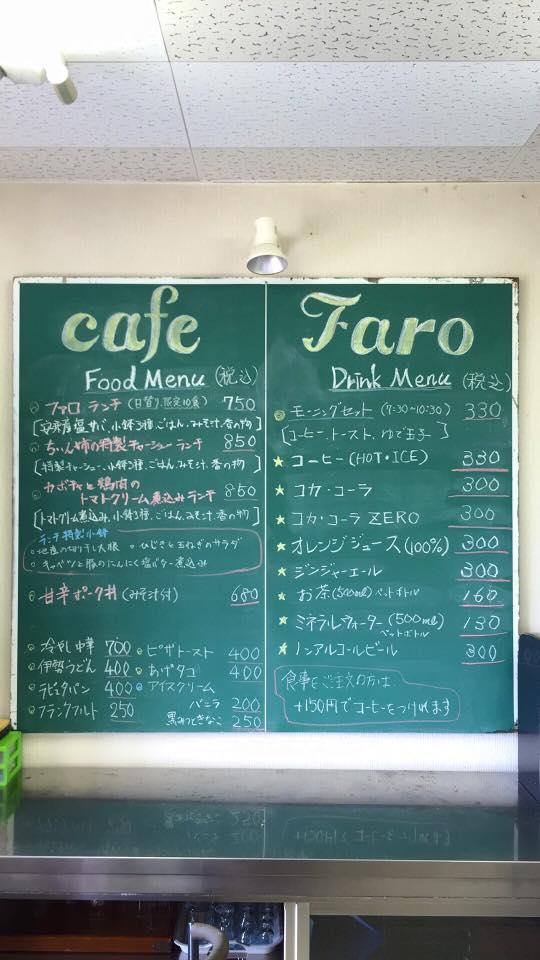 cafe Faro
Food Menu (税込)
ファロ ランチ (日替り、限定10食) 750
[安芸産塩サバ、小鉢3種、ごはん、みそ汁、香の物]
ちぃ姉の特製チャーシューランチ 850
[特製チャーシュー、小鉢3種、ごはん、みそ汁、香の物]
カボチャと鶏肉の
トマトクリーム煮込みランチ 850
[トマトクリーム煮込み、小鉢3種、ごはん、みそ汁、香の物]
ランチ特製小鉢
地産の切り干し大根 ひじきと玉ねぎのサラダ
キャベツと豚のにんにく塩バター煮込み
甘辛ポーク丼 (みそ汁付) 680
冷やし中華 700
伊勢うどん 400
ラピュタパン 400
フランクフルト 250
ピザトースト 400
あげタコ 400
アイスクリーム
バニラ 200
黒みつときなこ 250
Drink Menu (税込)
モーニングセット (7:30~10:30) 330
[コーヒー、トースト、ゆで玉子]
コーヒー (HOT・ICE) 330
コカ・コーラ 300
コカ・コーラ ZERO 300
オレンジジュース (100%) 300
ジンジャーエール 300
お茶 (500ml) ペットボトル 160
ミネラルウォーター (500ml) 130
ペットボトル
ノンアルコールビール 300
食事をご注文の方は、
+150円でコーヒーをつけれます